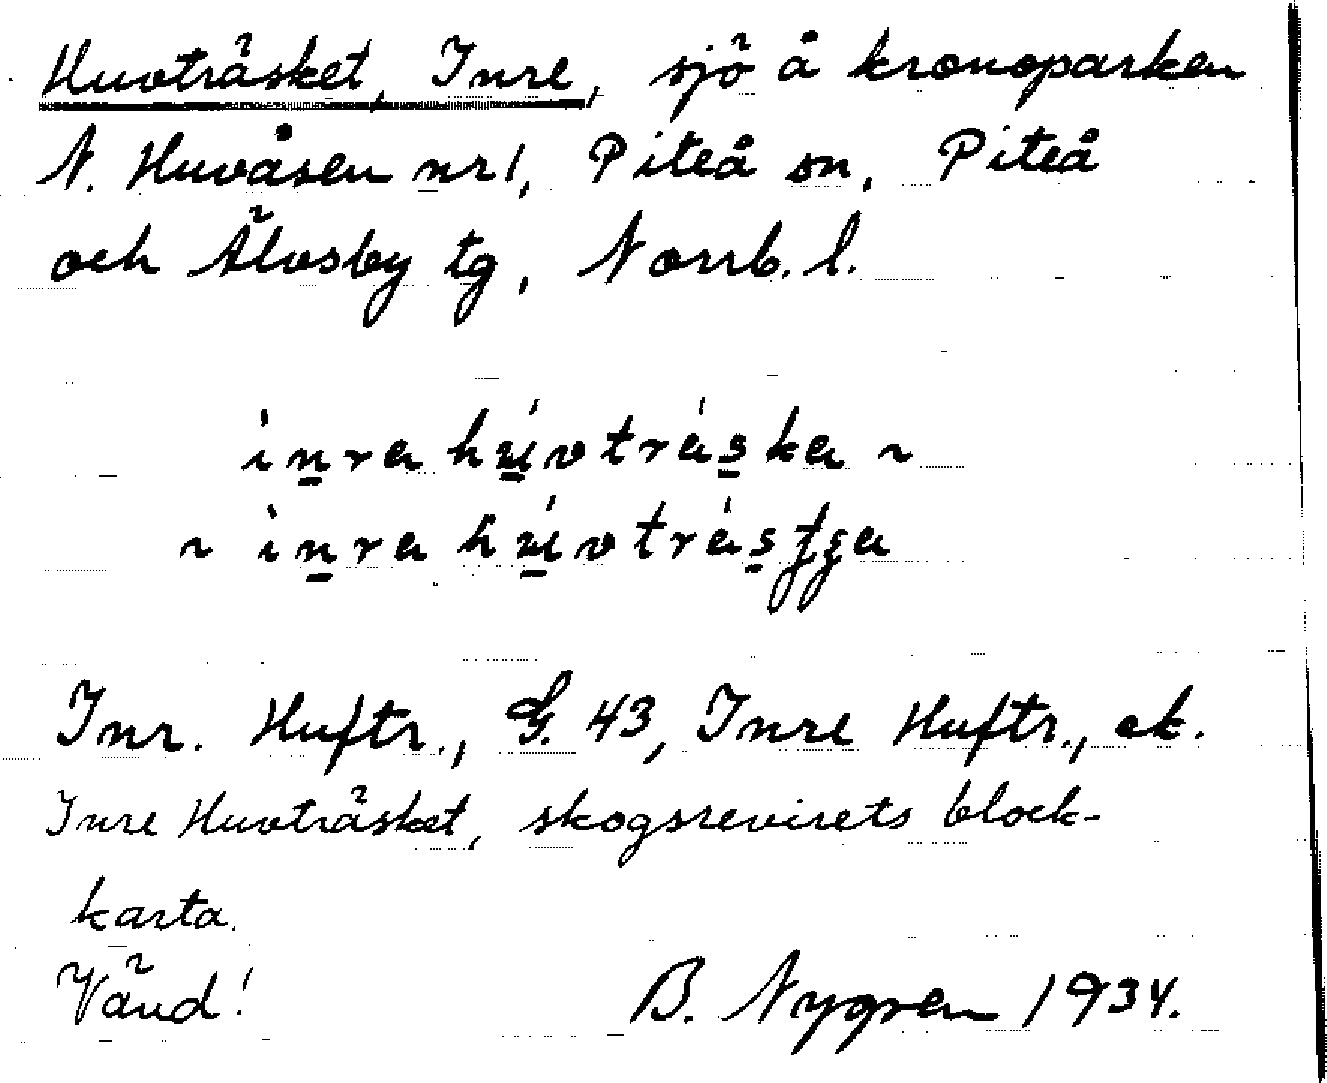 Huvträsket, Inre, sjö å kronoparken
N. Huvåsen nr 1, Piteå sn, Piteå
och Älvsby tg, Norrb. l.
i̇nra húvtráska ~
~ i̇nra húvtrás
Inr. Huftr., G. 43, Inre Huftr., ek.
Inre Huvträsket, skogsrevirets block-
karta.
Vänd!
B. Nygren 1934.